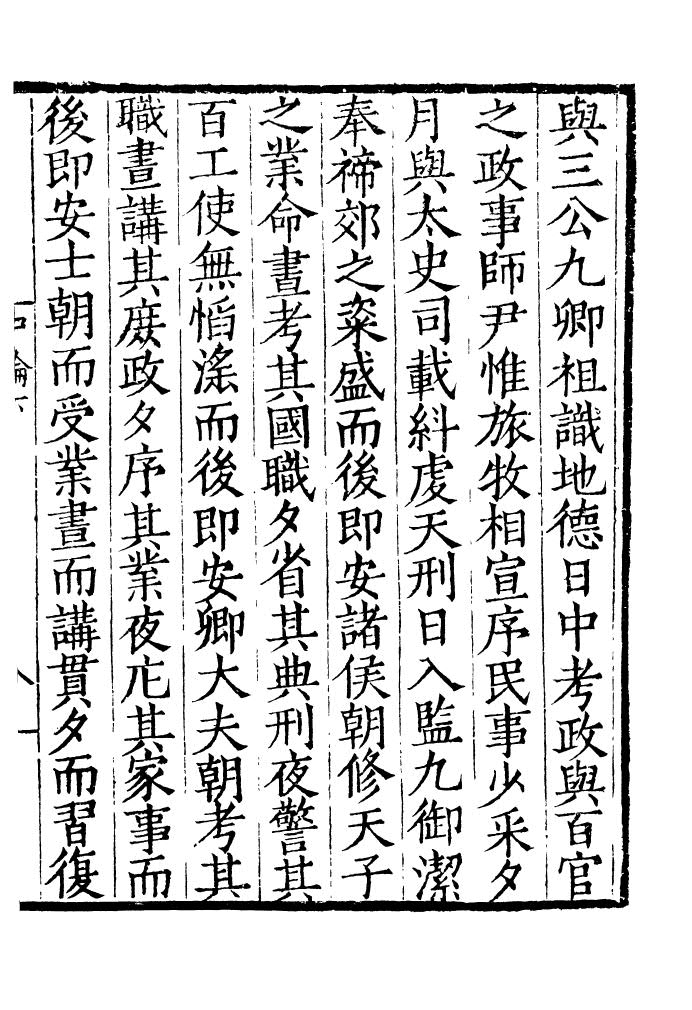 與三公九卿祖識地德日中考政與百官
之政事師尹惟旅牧相宣序民事少采夕
月與太史司載糾虔天刑日入監九御潔
奉禘郊之粢盛而後即安諸侯朝修天子
之業命晝考其國職夕省其典刑夜警其
百工使無慆滛而後即安卿大夫朝考其
職晝講其庻政夕序其業夜庀其家事而
後即安士朝而受業晝而講貫夕而習復